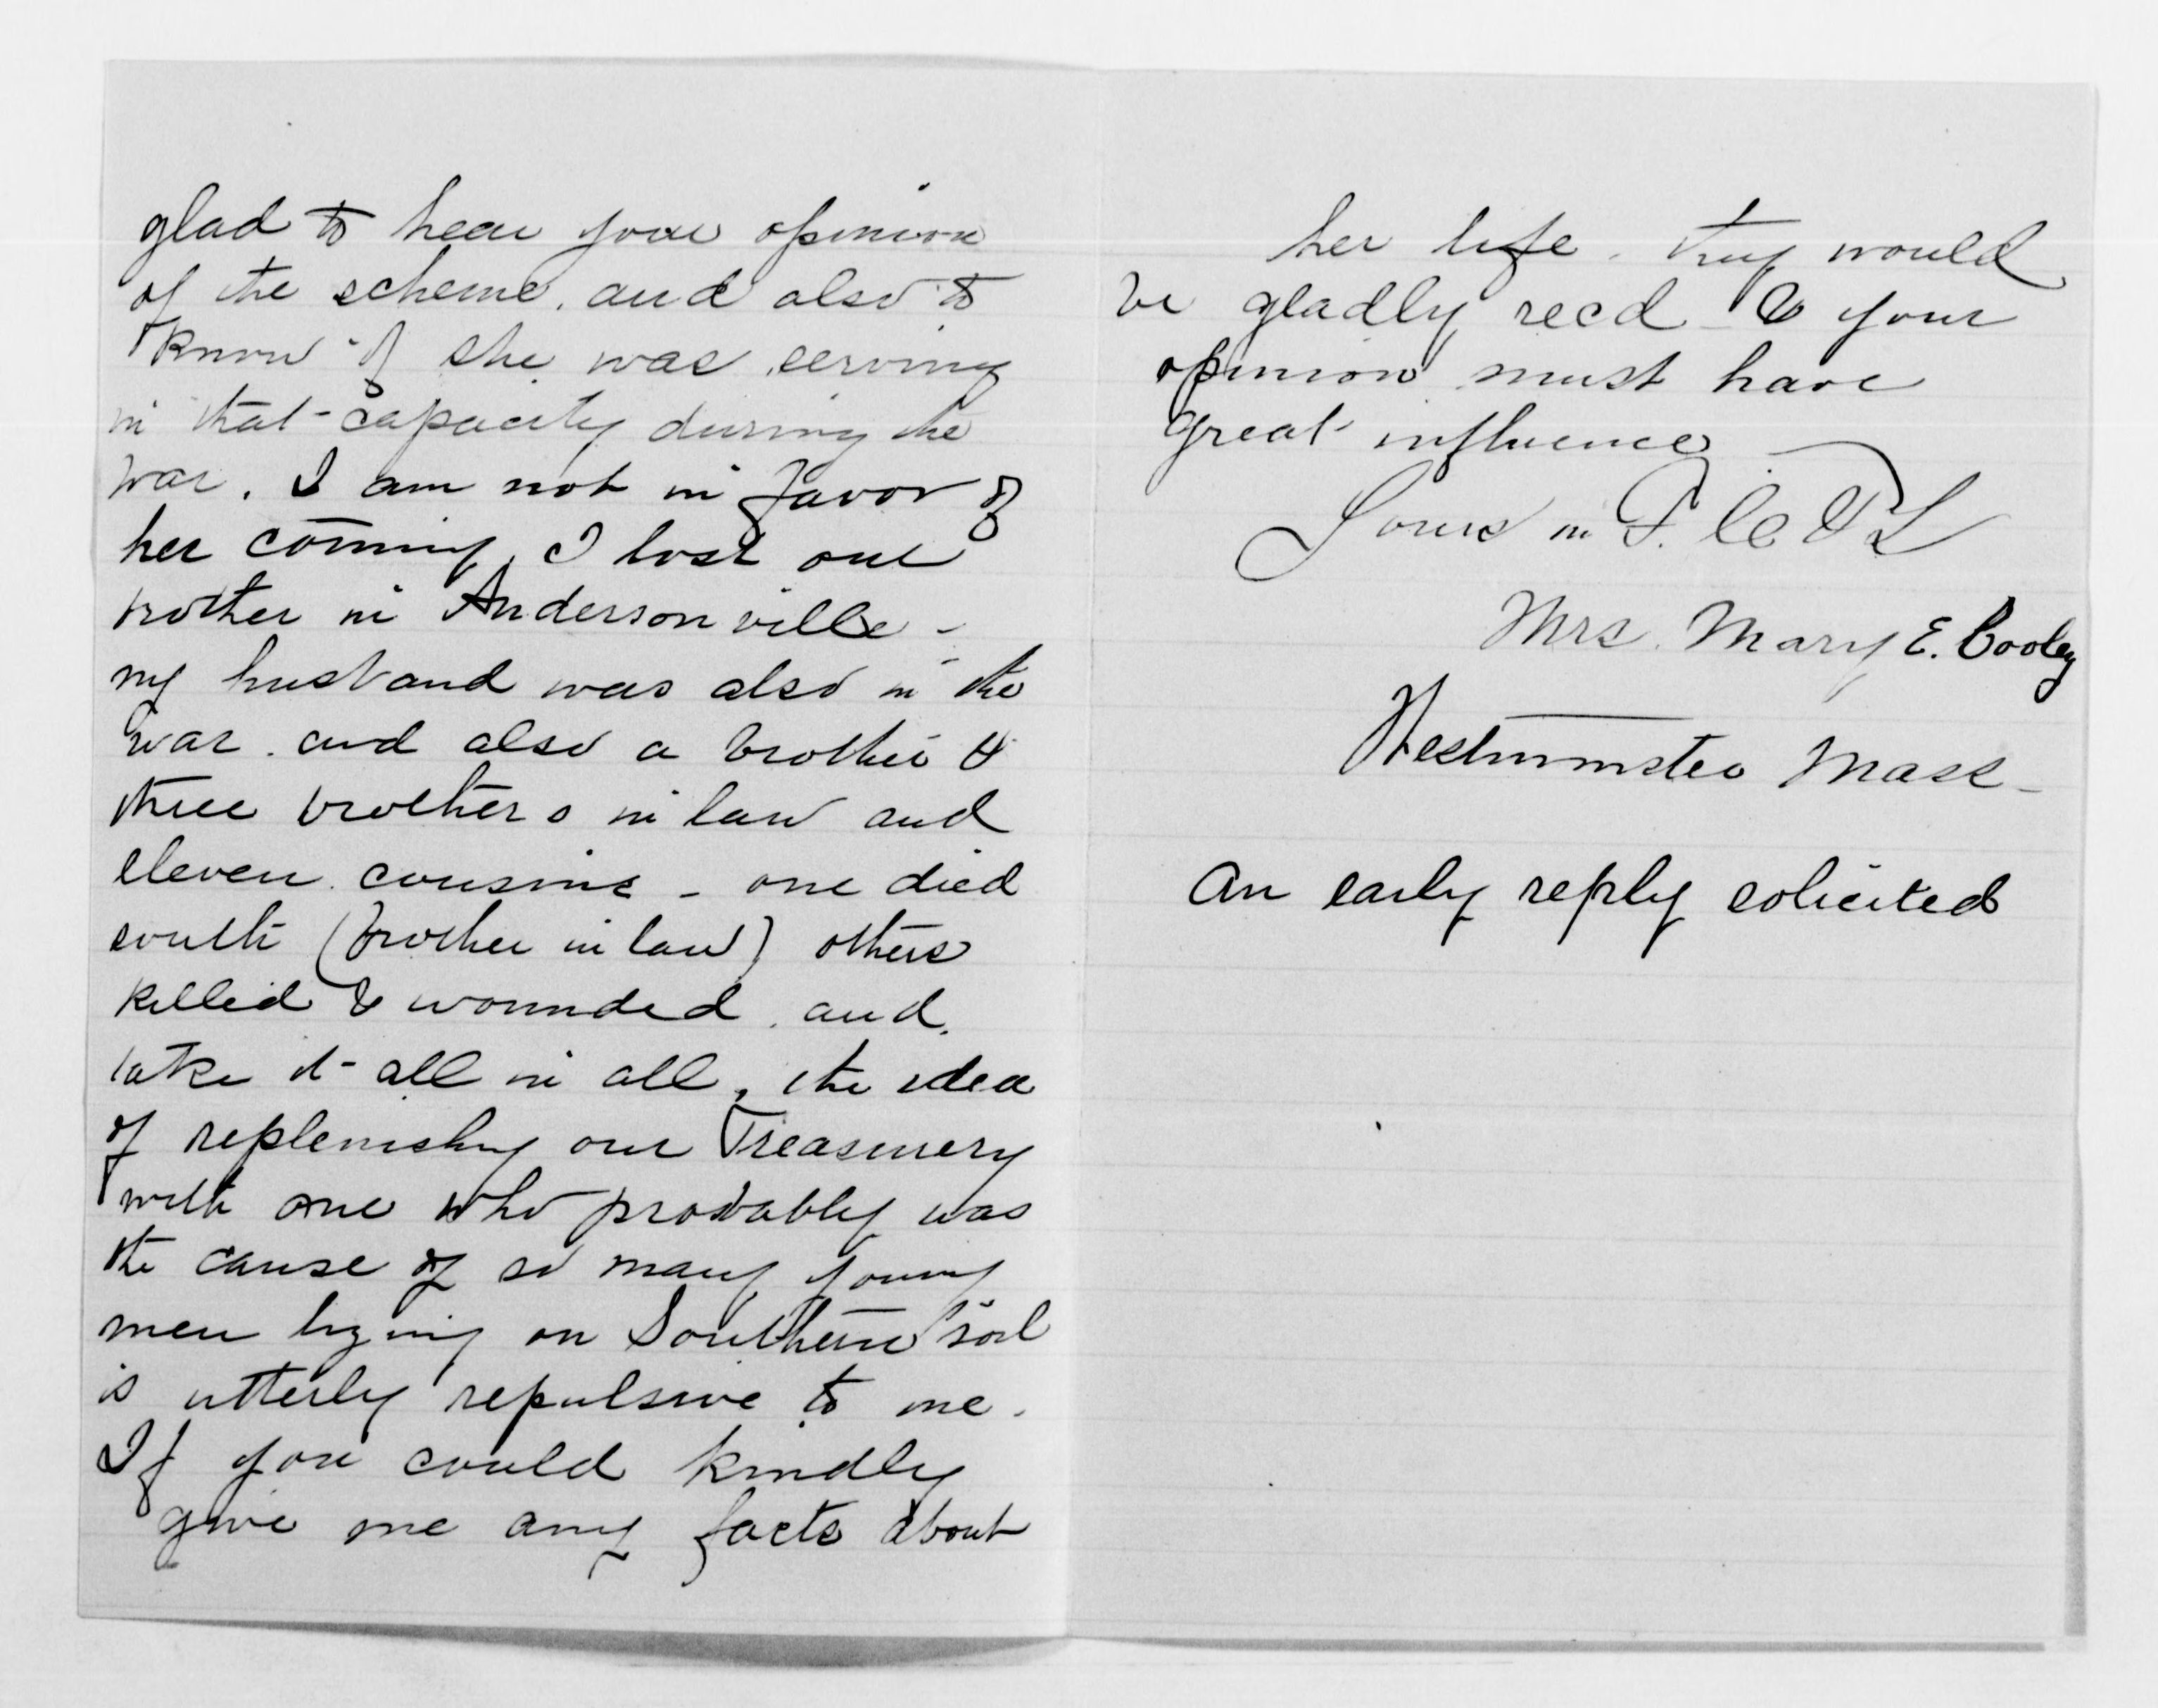 glad to hear your opinion
of the scheme. and also to
know if she was serving
in that capacity during the
war. I am not in favor of
her coming, I lost one
brother in Andersonville -
my husband was also in the
war. and also a brother &
three brothers in law and
eleven cousins - one died
south (brother in law) others
killed & wounded. and.
take it all in all, the idea
of replenishing our Treasurery
with one who probably was
the cause of so many young
men lyzing on Southern soil
is utterly repulsive to me.
If you could kindly
give me any facts about
her life. they would
be gladly recd - & your
opinion must have
great influence
Yours in F. C & L
Mrs. Mary E. Cooley
Westminster Mass -
An early reply solicited